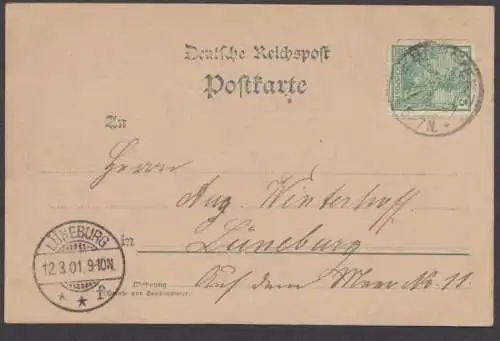 Deutsche Reichspost
Postkarte
An
Herrn
Aug. Winterhoff.
in Lüneburg
Wohnung Auf dem Meer No. 11.
(Straße und Hausnummer)
LÜNEBURG
12.3.01. 9-10N.
* * f
5
N.